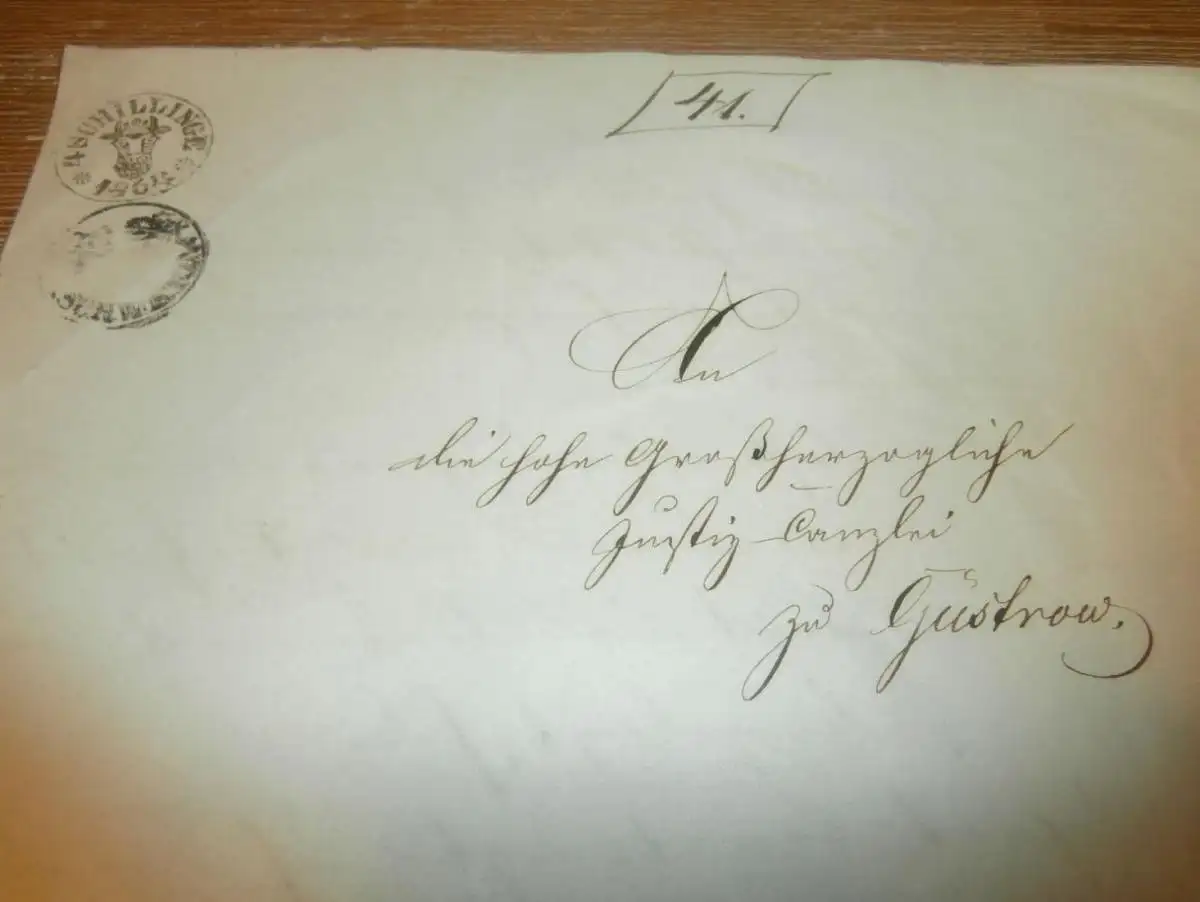 4 SCHILLINGE
41.
An
die hohe Großherzogliche
Justiz-Canzlei
zu Güstrow.